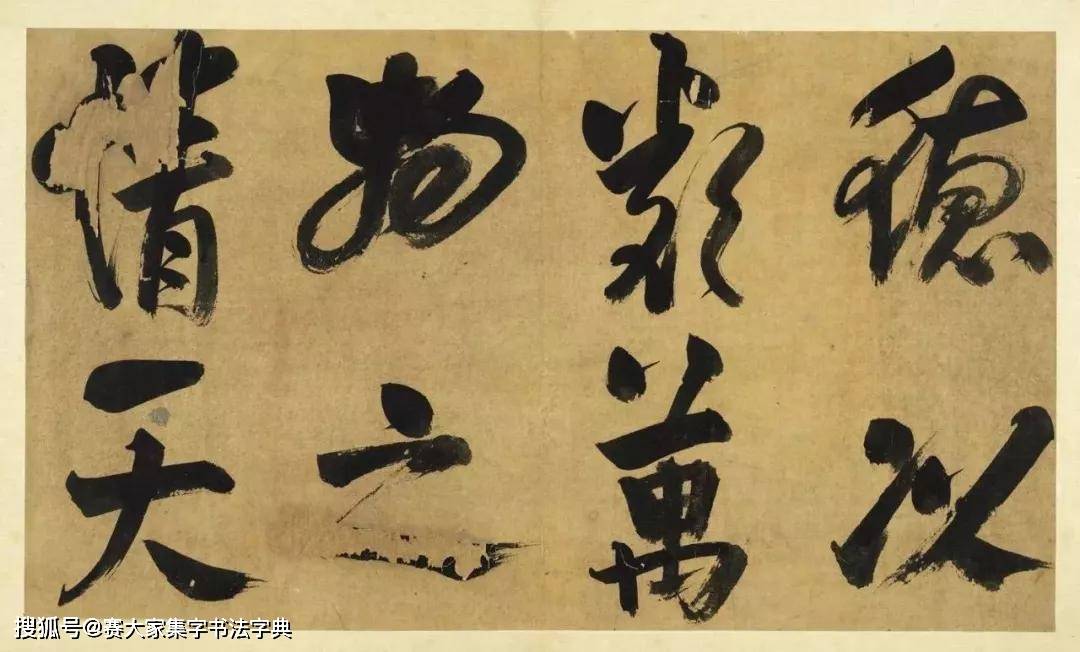 德以
類萬
物之
情天
搜狐号@赛大家集字书法字典